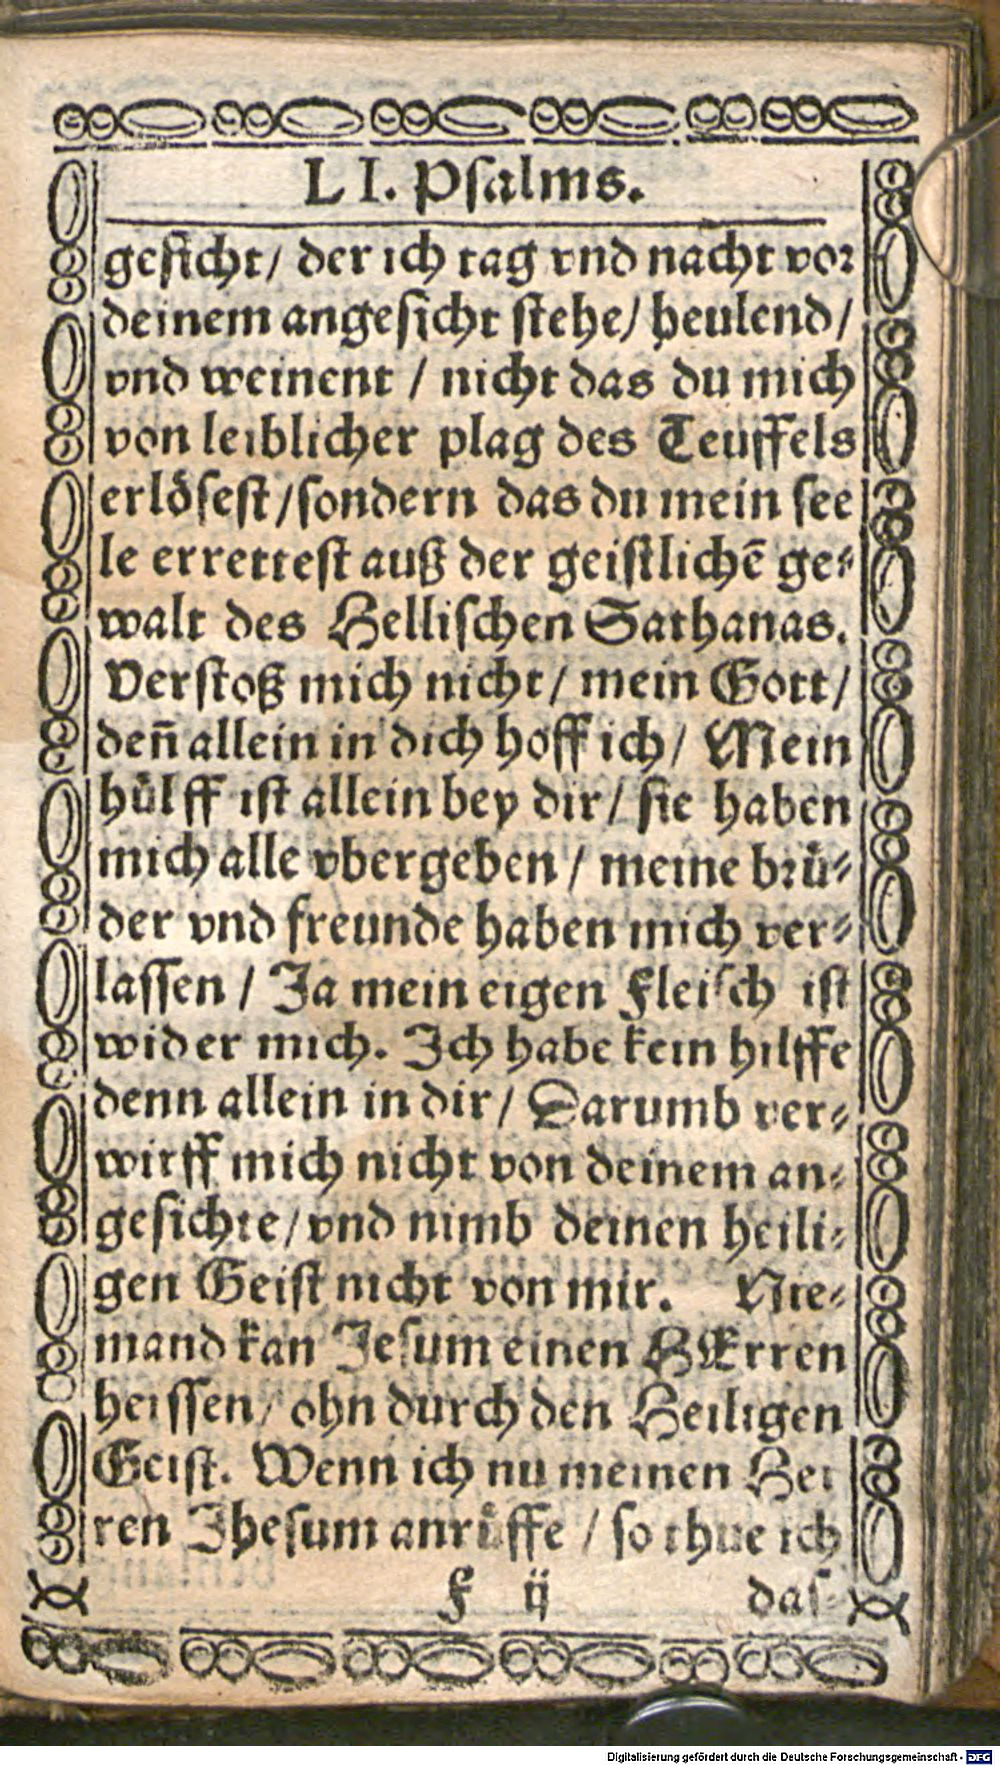 L I. Psalms.
gesicht/ der ich tag vnd nacht vor
deinem angesicht stehe/ heulend/
vnd weinent / nicht das du mich
von leiblicher plag des Teuffels
erlösest/sondern das du mein see
le errettest auß der geistlichē ge⸗
walt des Hellischen Sathanas.
Verstoß mich nicht/ mein Gott/
deñ allein in dich hoff ich/ Mein
hülff ist allein bey dir/ sie haben
mich alle vbergeben / meine brü⸗
der vnd freunde haben mich ver⸗
lassen / Ja mein eigen Fleisch ist
wider mich. Ich habe kein hilffe
denn allein in dir/ Darumb ver⸗
wirff mich nicht von deinem an⸗
gesichte/vnd nimb deinen heili⸗
gen Geist nicht von mir. Nie⸗
mand kan Jesum einen HErren
heissen/ ohn durch den Heiligen
Geist. Wenn ich nu meinen Her
ren Jhesum anrüffe / so thue ich
F ij das⸗
Digitalisierung gefördert durch die Deutsche Forschungsgemeinschaft - DFG